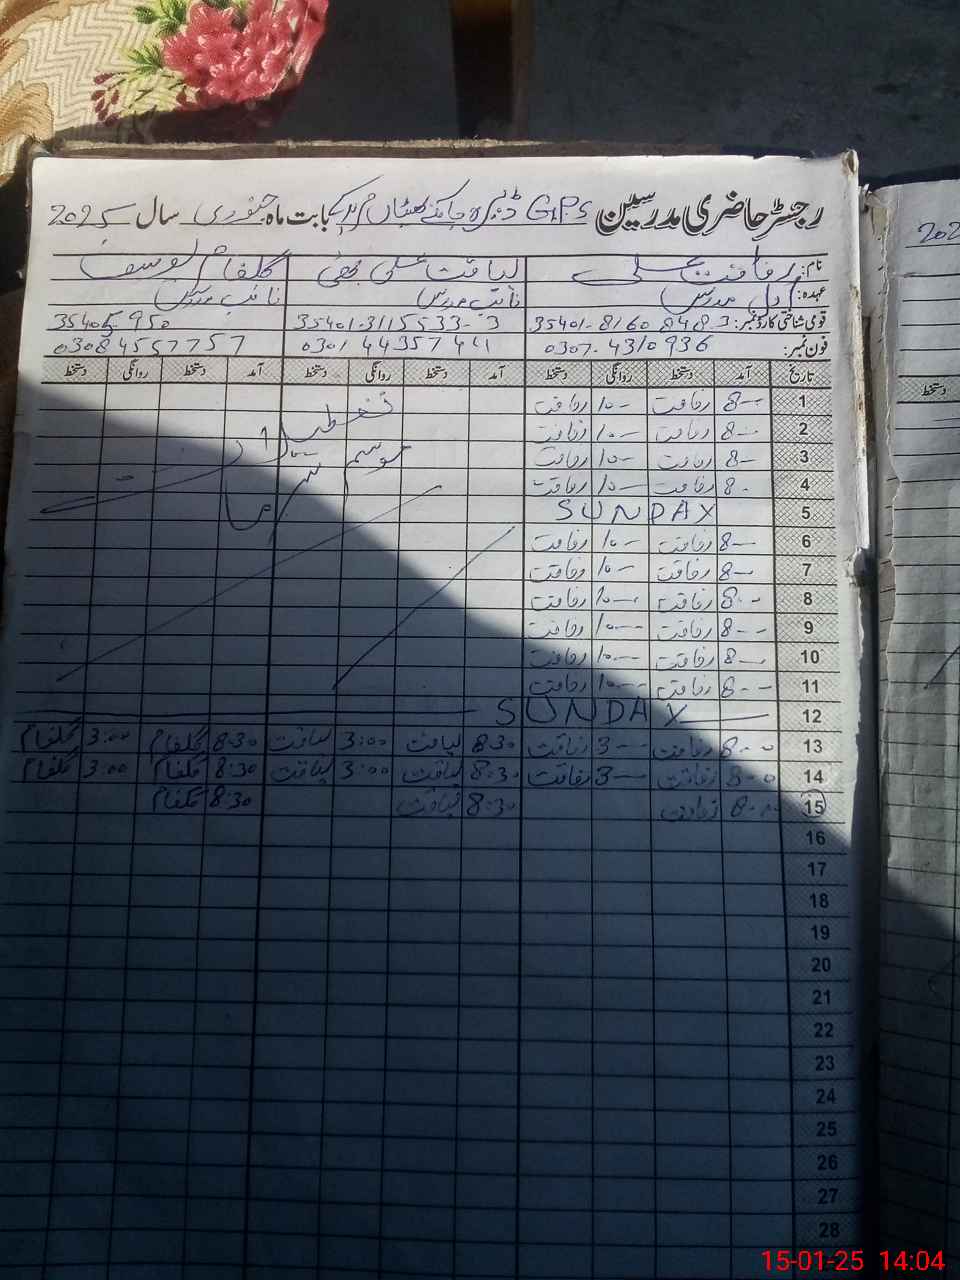 رجسٹر حاضری مدرسین G.P.S ڈیرہ چاکنے بھٹیاں بابت ماہ جنوری سال 2025ء
نام: رفاقت علی لیاقت علی بھٹی گلفام یوسف
عہدہ: اول مدرس نائب مدرس نائب مدرس
قومی شناختی کارڈ نمبر: 35401-8160848-3 35401-3115533-3 35405-950
فون نمبر: 0307-4310936 0301 4435744 03084557757
تاریخ آمد دستخط روانگی دستخط آمد دستخط روانگی دستخط آمد دستخط روانگی دستخط
1 8-- رفاقت 10- رفاقت
2 8- رفاقت 10- رفاقت
3 8- رفاقت 10- رفاقت
4 8- رفاقت 10- رفاقت
5 SUNDAY
تعطیلات
موسم سرما
6 8-- رفاقت 10- رفاقت
7 8-- رفاقت 10- رفاقت
8 8-- رفاقت 10-- رفاقت
9 8-- رفاقت 10-- رفاقت
10 8-- رفاقت 10-- رفاقت
11 8-- رفاقت 10-- رفاقت
12 SUNDAY
13 8-- رفاقت 3-- رفاقت 8:30 لیاقت 3:00 لیاقت 8:30 گلفام 3:00 گلفام
14 8-- رفاقت 3-- رفاقت 8:30 لیاقت 3:00 لیاقت 8:30 گلفام 3:00 گلفام
15 8-- رفاقت 8:30 لیاقت 8:30 گلفام
16
17
18
19
20
21
22
23
24
25
26
27
28
202
دستخط
15-01-25 14:04